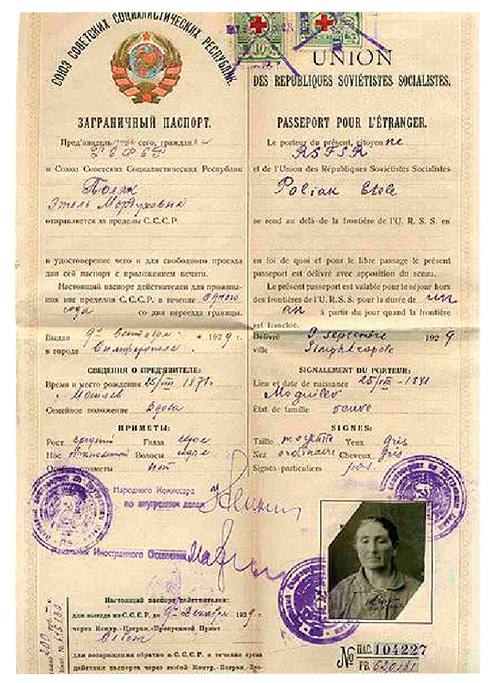 СОЮЗ СОВЕТСКИХ СОЦИАЛИСТИЧЕСКИХ РЕСПУБЛИК.
ЗАГРАНИЧНЫЙ ПАСПОРТ.
Пред'явитель сего, граждан
РСФСР
и Союза Советских Социалистических Республик
Поляк
Этель Мордуховна
отправляется за пределы С.С.С.Р.
в удостоверение чего и для свободного проезда
дан сей паспорт с приложением печати.
Настоящий паспорт действителен для прожива-
ния вне пределов С.С.С.Р. в течение одного
года со дня переезда границы.
Выдан 9го сентября 1929 г.
в городе Симферополе
СВЕДЕНИЯ О ПРЕД'ЯВИТЕЛЕ:
Время и место рождения 25/VIII 1871
г. Могилев
Семейное положение Вдова
ПРИМЕТЫ:
Рост средний Глаза серые
Нос Волосы
Особые приметы нет
Народного Комиссара
по внутренним делам
Начальник Иностранного Отделения
Настоящий паспорт действителен:
для выезда из С.С.С.Р. до 9го декабря 1929 г.
через Контр.-Погран.-Пропускной Пункт
для возвращения обратно в С.С.С.Р. в течение срока
действия паспорта через любой Контр.-Погран.-
UNION
DES REPUBLIQUES SOVIÉTISTES SOCIALISTES.
PASSEPORT POUR L'ÉTRANGER.
Le porteur du présent, citoyenne
RSFSR
et de l'Union des Républiques Soviétistes Socialistes
Poliak Etele
se rend au delà de la frontière de l'U. R. S. S. en
en foi de quoi et pour le libre passage le présent
passeport est délivré avec apposition du sceau.
Le présent passeport est valable pour le séjour hors
des frontières de l'U. R. S. S. pour la durée de un
an à partir du jour quand la frontière
est franchie.
Délivré 9 septembre 1929
ville
SIGNALEMENT DU PORTEUR:
Lieu et date de naissance 25/VIII-1871
Moguilev
État de famille veuve
SIGNES:
Taille moyenne Yeux gris
Nez ordinaire Cheveux gris
Signes particuliers pas.
№ ПАС. 104227
PB. 620181